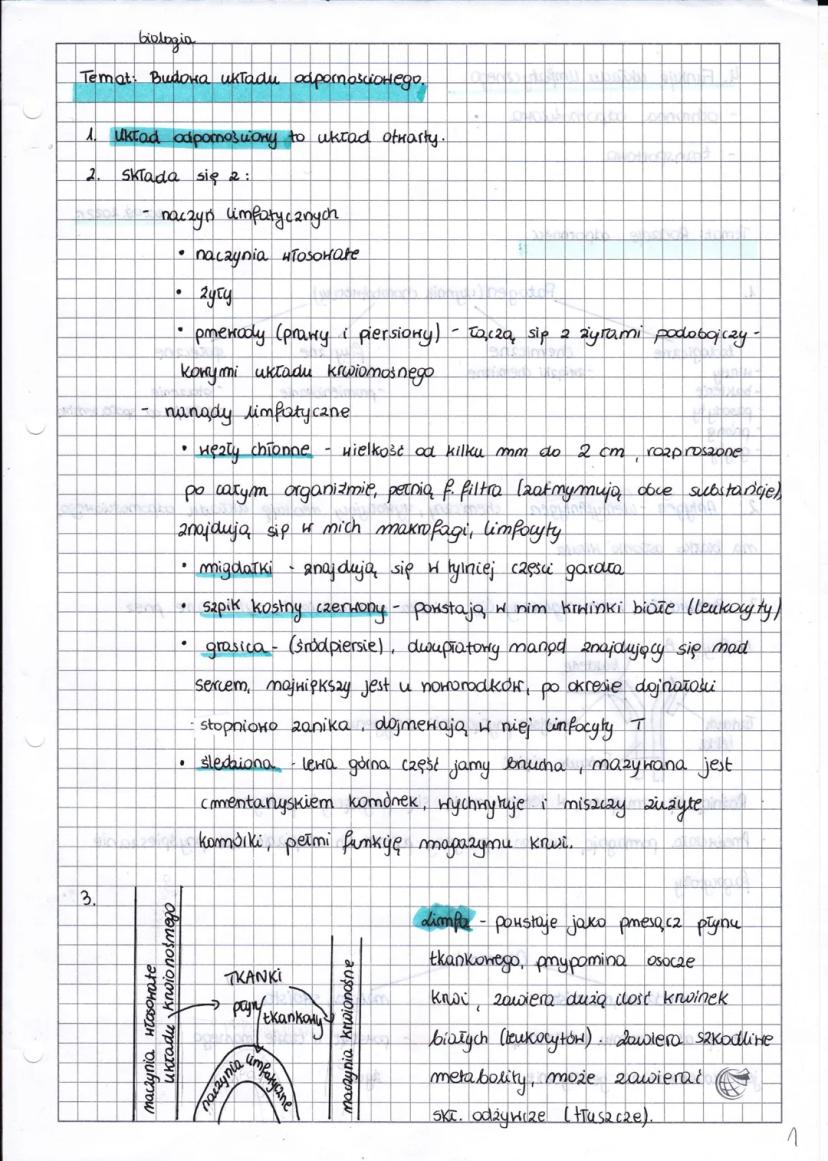 biologia
Temat: Budowa układu odpornościowego.
1. Układ odpornościowy to układ otwarty.
2. Składa się z:
- naczyń limfatycznych
• naczynia włosowate
• żyły
• przewody (prawy i piersiowy) - łączą się z żyłami podobojczy-
kowymi układu krwionośnego
- narządy limfatyczne
• węzły chłonne - wielkość od kilku mm do 2 cm, rozproszone
po całym organizmie, pełnią f. filtra (zatrzymują obce substancje),
znajdują się w nich makrofagi, limfocyty
• migdałki - znajdują się w tylniej części gardła
• szpik kostny czerwony - powstają w nim krwinki białe (leukocyty)
• grasica - (śródpiersie), dwupłatowy narząd znajdujący się nad
sercem, największy jest u noworodków, po okresie dojrzałości
stopniowo zanika, dojrzewają w niej linfocyty T
• śledziona - lewa górna część jamy brzucha, nazywana jest
cmentarzyskiem komórek, wychwytuje i niszczy zużyte
komórki, pełni funkcję magazynu krwi.
3.
naczynia włosowate
układu krwionośnego
TKANKI
płyn
tkankowy
naczynia limfatyczne
naczynia krwionośne
Limfa - powstaje jako przesącz płynu
tkankowego, przypomina osocze
krwi, zawiera dużą ilość krwinek
białych (leukocytów). Zawiera szkodliwe
metabolity, może zawierać
skł. odżywcze (tłuszcze).
1